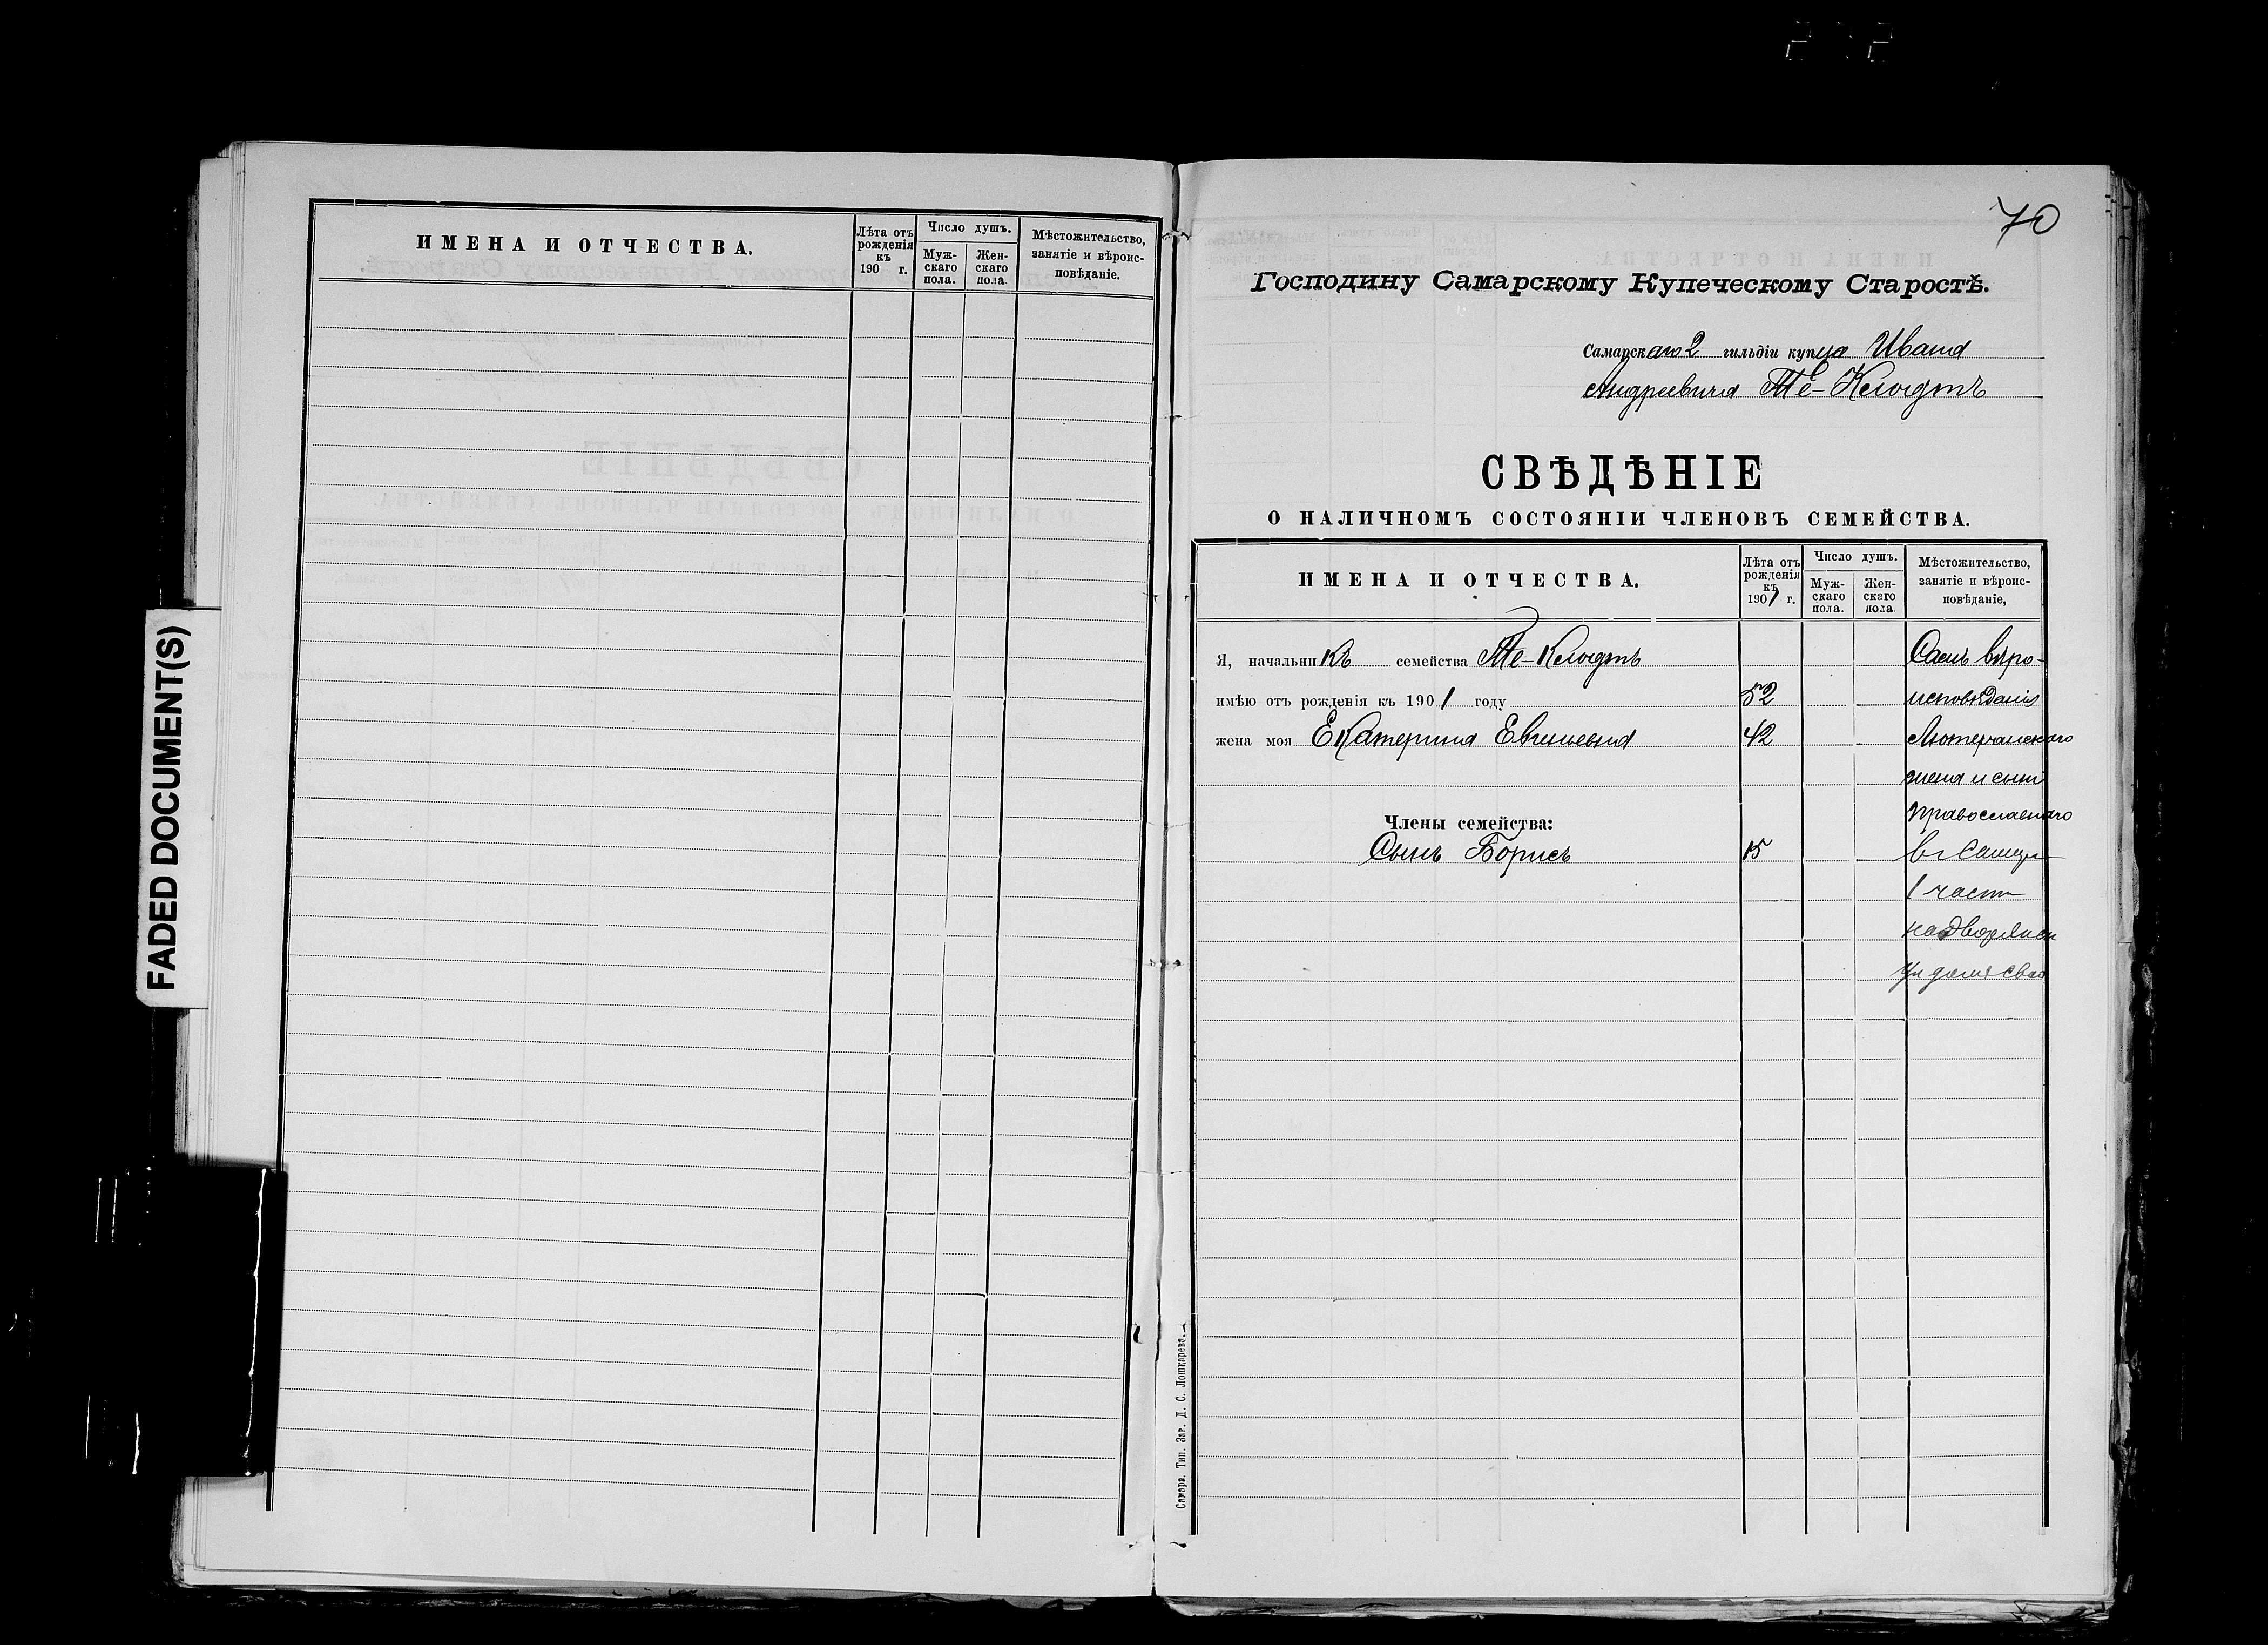 ИМЕНА И ОТЧЕСТВА.
Лѣта отъ рожденія къ 190 г.
Число душъ.
Мужскаго пола.
Женскаго пола.
Мѣстожительство, занятіе и вѣроисповѣданіе.
FADED DOCUMENT(S)
70
Господину Самарскому Купеческому Старостѣ.
Самарскаго 2 гильдіи купца Ивана
Андреевича Те-Клодтъ
СВѢДѢНІЕ
О НАЛИЧНОМЪ СОСТОЯНІИ ЧЛЕНОВЪ СЕМЕЙСТВА.
ИМЕНА И ОТЧЕСТВА.
Лѣта отъ рожденія къ 1901 г.
Число душъ.
Мужскаго пола.
Женскаго пола.
Мѣстожительство, занятіе и вѣроисповѣданіе,
Я, начальникъ семейства Те-Клодтъ
Самъ вѣро-
имѣю отъ рожденія къ 1901 году 52
исповѣданія
жена моя Екатерина 42
Лютеранскаго
жена и сынъ
православнаго
Члены семейства:
Сынъ Борисъ 15
въ Самарѣ
1 части
на Дворянск
ул домъ свой
Самара. Тип. Зяг. Д. С. Лошкарева.